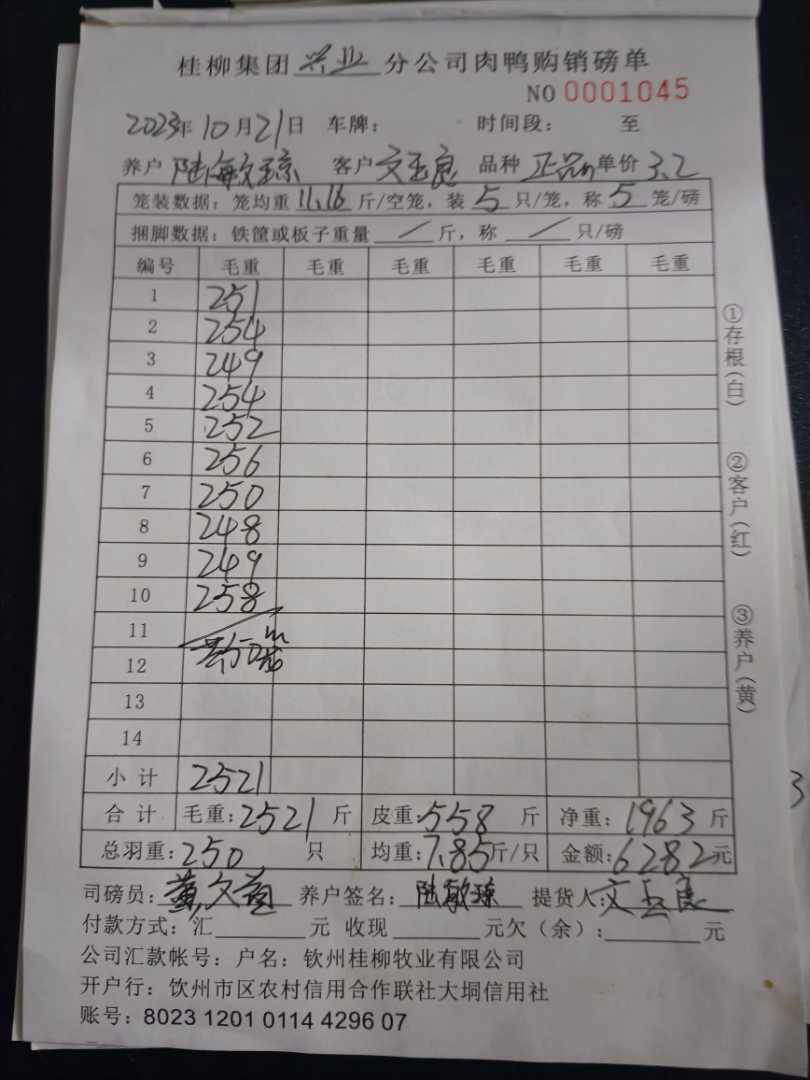 桂柳集团兴业分公司肉鸭购销磅单
NO 0001045
2023年10月21日 车牌： 时间段： 至
养户 陆敏琼 客户 文玉良 品种 正品 单价 3.2
笼装数据：笼均重 11.16 斤/空笼，装 5 只/笼，称 5 笼/磅
捆脚数据：铁筐或板子重量 / 斤，称 / 只/磅
编号 毛重 毛重 毛重 毛重 毛重 毛重
1 251
2 254
3 249
4 254
5 252
6 256
7 250
8 248
9 249
10 258
11
12 共50笼
13
14
小计 2521
合计 毛重：2521斤 皮重：558斤 净重：1963斤
总羽重：250只 均重：7.85斤/只 金额：6282元
司磅员： 养户签名：陆敏琼 提货人：文玉良
付款方式：汇 元 收现 元欠（余）： 元
公司汇款帐号：户名：钦州桂柳牧业有限公司
开户行：饮州市区农村信用合作联社大垌信用社
账号：8023 1201 0114 4296 07
①存根（白）
②客户（红）
③养户（黄）
3